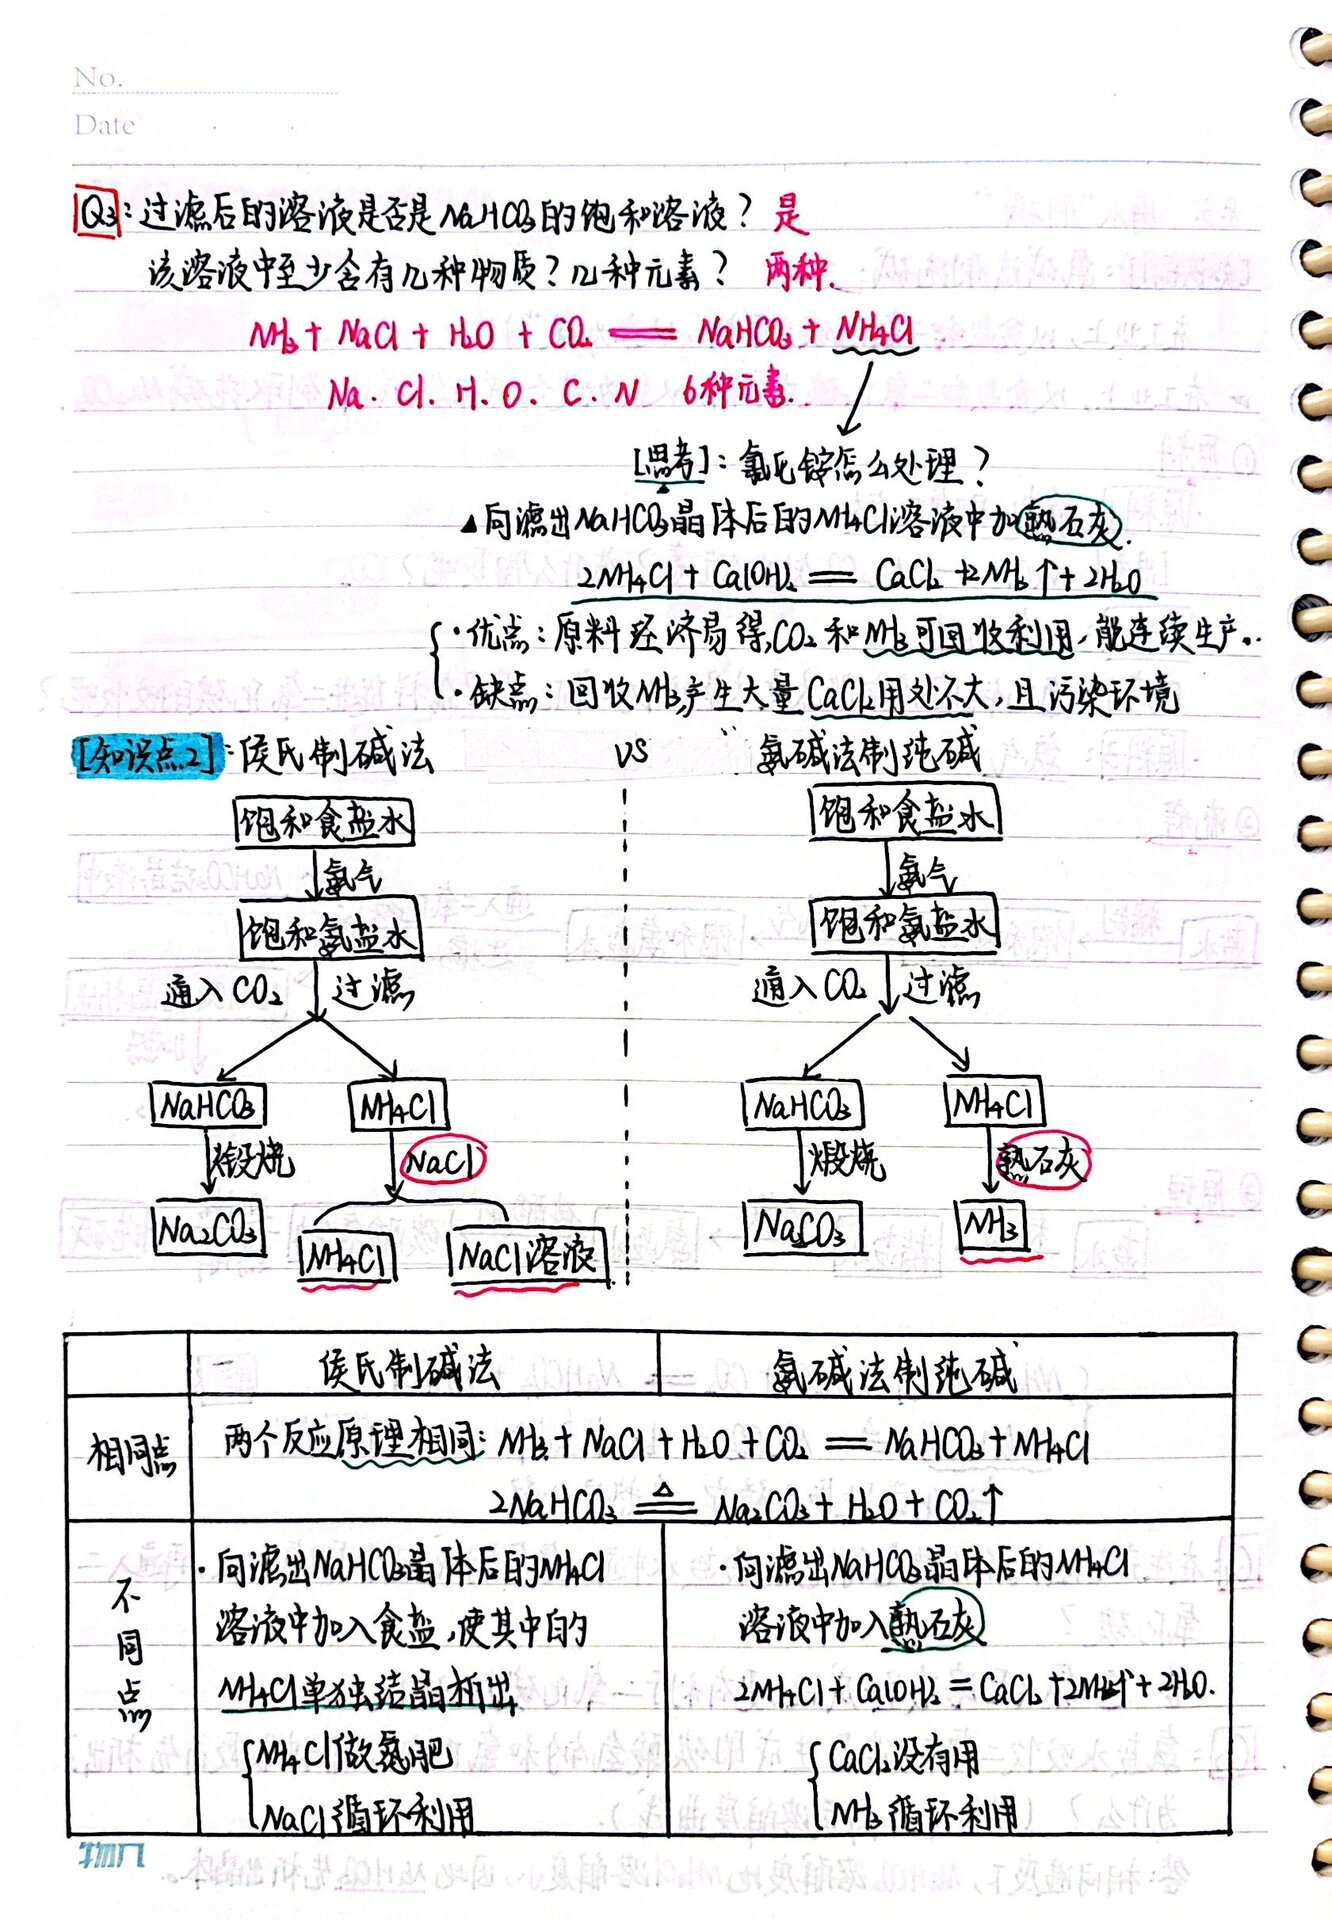 No.
Date
Q3：过滤后的溶液是否是NaHCO₃的饱和溶液？ 是
该溶液中至少含有几种物质？几种元素？ 两种.
NH₃ + NaCl + H₂O + CO₂ == NaHCO₃ + NH₄Cl
Na . Cl . H . O . C . N 6种元素.
[思考]：氯化铵怎么处理？
▲向滤出NaHCO₃晶体后的NH₄Cl溶液中加熟石灰.
2NH₄Cl + Ca(OH)₂ == CaCl₂ + 2NH₃↑ + 2H₂O
·优点：原料经济易得,CO₂和NH₃可回收利用，能连续生产.
·缺点：回收NH₃产生大量CaCl₂用处不大，且污染环境
[知识点2]：侯氏制碱法 VS 氨碱法制纯碱
饱和食盐水 饱和食盐水
氨气 氨气
饱和氨盐水 饱和氨盐水
通入CO₂ 过滤 通入CO₂ 过滤
NaHCO₃ NH₄Cl NaHCO₃ NH₄Cl
煅烧 NaCl 煅烧 熟石灰
Na₂CO₃ NH₄Cl NaCl溶液 Na₂CO₃ NH₃
侯氏制碱法 氨碱法制纯碱
相同点 两个反应原理相同：NH₃ + NaCl + H₂O + CO₂ == NaHCO₃ + NH₄Cl
2NaHCO₃ ==△== Na₂CO₃ + H₂O + CO₂↑
不同点
·向滤出NaHCO₃晶体后的NH₄Cl
溶液中加入食盐,使其中的
NH₄Cl单独结晶析出
NH₄Cl做氮肥
NaCl循环利用
·向滤出NaHCO₃晶体后的NH₄Cl
溶液中加入熟石灰
2NH₄Cl + Ca(OH)₂ = CaCl₂ + 2NH₃↑ + 2H₂O.
CaCl₂没有用
NH₃循环利用